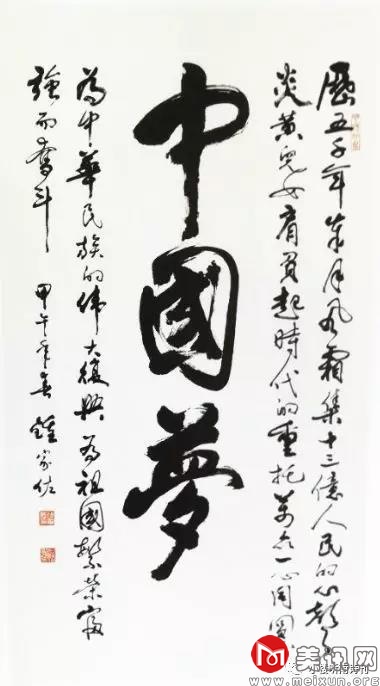 歷五千年歲月風霜集十三億人民的心
炎黃兒女肩負起時代的重托萬众一心同圓
中國夢
為中華民族的偉大復興為祖國繁榮富
強而奮斗
甲午年春 鍾家佐
美讯网
www.meixun.org